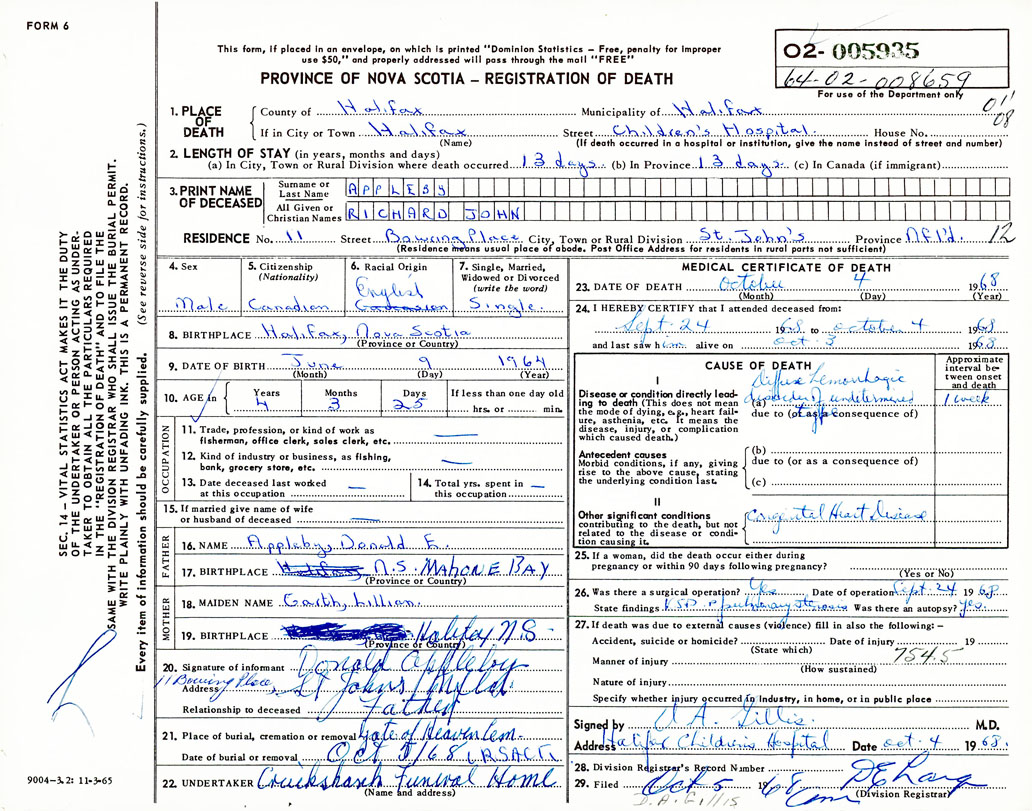 FORM 6
This form, if placed in an envelope, on which is printed "Dominion Statistics – Free, penalty for improper
use $50," and properly addressed will pass through the mail "FREE"
PROVINCE OF NOVA SCOTIA – REGISTRATION OF DEATH
02- 005935
64-02-008659
For use of the Department only
011
08
1. PLACE OF DEATH
County of Halifax Municipality of Halifax
If in City or Town Halifax Street Children's Hospital House No.
(Name) (If death occurred in a hospital or institution, give the name instead of street and number)
2. LENGTH OF STAY (in years, months and days)
(a) In City, Town or Rural Division where death occurred 13 days (b) In Province 13 days (c) In Canada (if immigrant)
3. PRINT NAME OF DECEASED
Surname or Last Name APPLEBY
All Given or Christian Names RICHARD JOHN
RESIDENCE No. 11 Street Bowring Place City, Town or Rural Division St. John's Province Nfld. 12
(Residence means usual place of abode. Post Office Address for residents in rural parts not sufficient)
4. Sex
Male
5. Citizenship (Nationality)
Canadian
6. Racial Origin
English
7. Single, Married, Widowed or Divorced (write the word)
Single
8. BIRTHPLACE Halifax, Nova Scotia
(Province or Country)
9. DATE OF BIRTH June 9 1964
(Month) (Day) (Year)
10. AGE in Years Months Days If less than one day old
4 3 25 hrs. or min.
OCCUPATION
11. Trade, profession, or kind of work as
fisherman, office clerk, sales clerk, etc. —
12. Kind of industry or business, as fishing,
bank, grocery store, etc. —
13. Date deceased last worked
at this occupation —
14. Total yrs. spent in
this occupation —
15. If married give name of wife
or husband of deceased —
FATHER
16. NAME Appleby, Donald E.
17. BIRTHPLACE Halifax, N.S. MAHONE BAY
(Province or Country)
MOTHER
18. MAIDEN NAME Garth, Lillian
19. BIRTHPLACE Halifax, N.S.
(Province or Country)
20. Signature of informant Donald Appleby
Address 11 Bowring Place, St Johns, Nfld.
Relationship to deceased Father
21. Place of burial, cremation or removal Gate of Heaven Cem.
Date of burial or removal Oct 5/68
22. UNDERTAKER Cruikshank Funeral Home
(Name and address)
MEDICAL CERTIFICATE OF DEATH
23. DATE OF DEATH October 4 1968
(Month) (Day) (Year)
24. I HEREBY CERTIFY that I attended deceased from:
Sept. 24 1968 to October 4 1968
and last saw him alive on Oct. 3 1968
CAUSE OF DEATH
Approximate interval between onset and death
I
Disease or condition directly leading to death (This does not mean the mode of dying, e.g., heart failure, asthenia, etc. It means the disease, injury, or complication which caused death.)
(a) Diffuse hemorrhagic disorder of undetermined type 1 week
due to (or as a consequence of)
Antecedent causes
Morbid conditions, if any, giving rise to the above cause, stating the underlying condition last.
(b)
due to (or as a consequence of)
(c)
II
Other significant conditions contributing to the death, but not related to the disease or condition causing it.
Congenital Heart Disease
25. If a woman, did the death occur either during
pregnancy or within 90 days following pregnancy?
(Yes or No)
26. Was there a surgical operation? Yes Date of operation Sept. 24 1968
State findings VSD & pulmonary stenosis Was there an autopsy? Yes.
27. If death was due to external causes (violence) fill in also the following: –
Accident, suicide or homicide? Date of injury 19
(State which)
Manner of injury 754.5
(How sustained)
Nature of injury
Specify whether injury occurred in industry, in home, or in public place
Signed by D. A. Gillis. M.D.
Address Halifax Children's Hospital Date Oct. 4 1968.
28. Division Registrar's Record Number
29. Filed Oct 5 1968
(Division Registrar)
D.A. Gillis
SEC. 14 – VITAL STATISTICS ACT MAKES IT THE DUTY
OF THE UNDERTAKER OR PERSON ACTING AS UNDER-
TAKER TO OBTAIN ALL THE PARTICULARS REQUIRED
IN THE "REGISTRATION OF DEATH" AND TO FILE THE
SAME WITH THE DIVISION REGISTRAR WHO SHALL ISSUE THE BURIAL PERMIT.
WRITE PLAINLY WITH UNFADING INK. THIS IS A PERMANENT RECORD.
Every item of information should be carefully supplied. (See reverse side for instructions.)
9004-3.2: 11-3-65